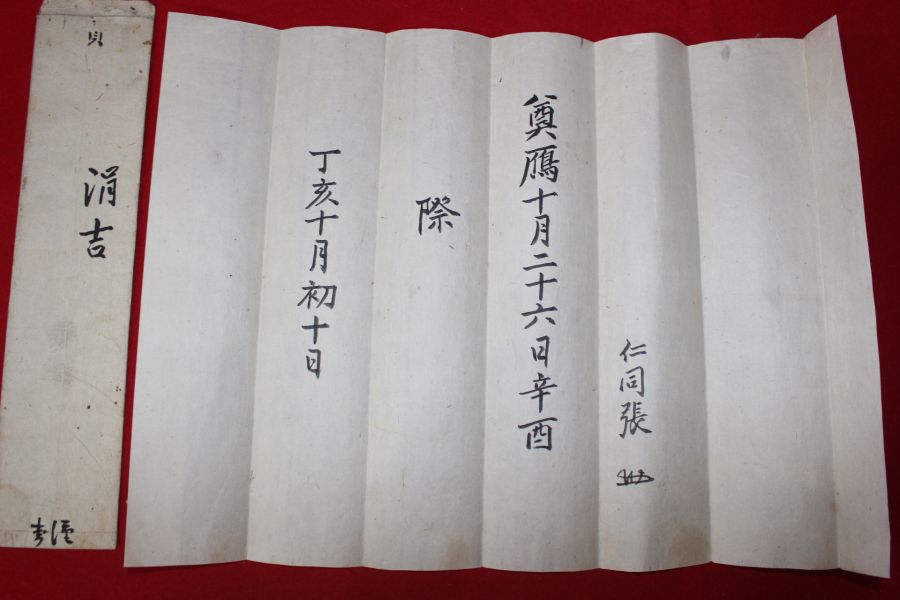 仁同張
奠鴈十月二十六日辛酉
際
丁亥十月初十日
涓吉